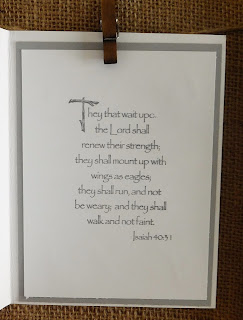 They that wait upo
the Lord shall
renew their strength;
they shall mount up with
wings as eagles;
they shall run, and not
be weary; and they shall
walk and not faint.
Isaiah 40:31